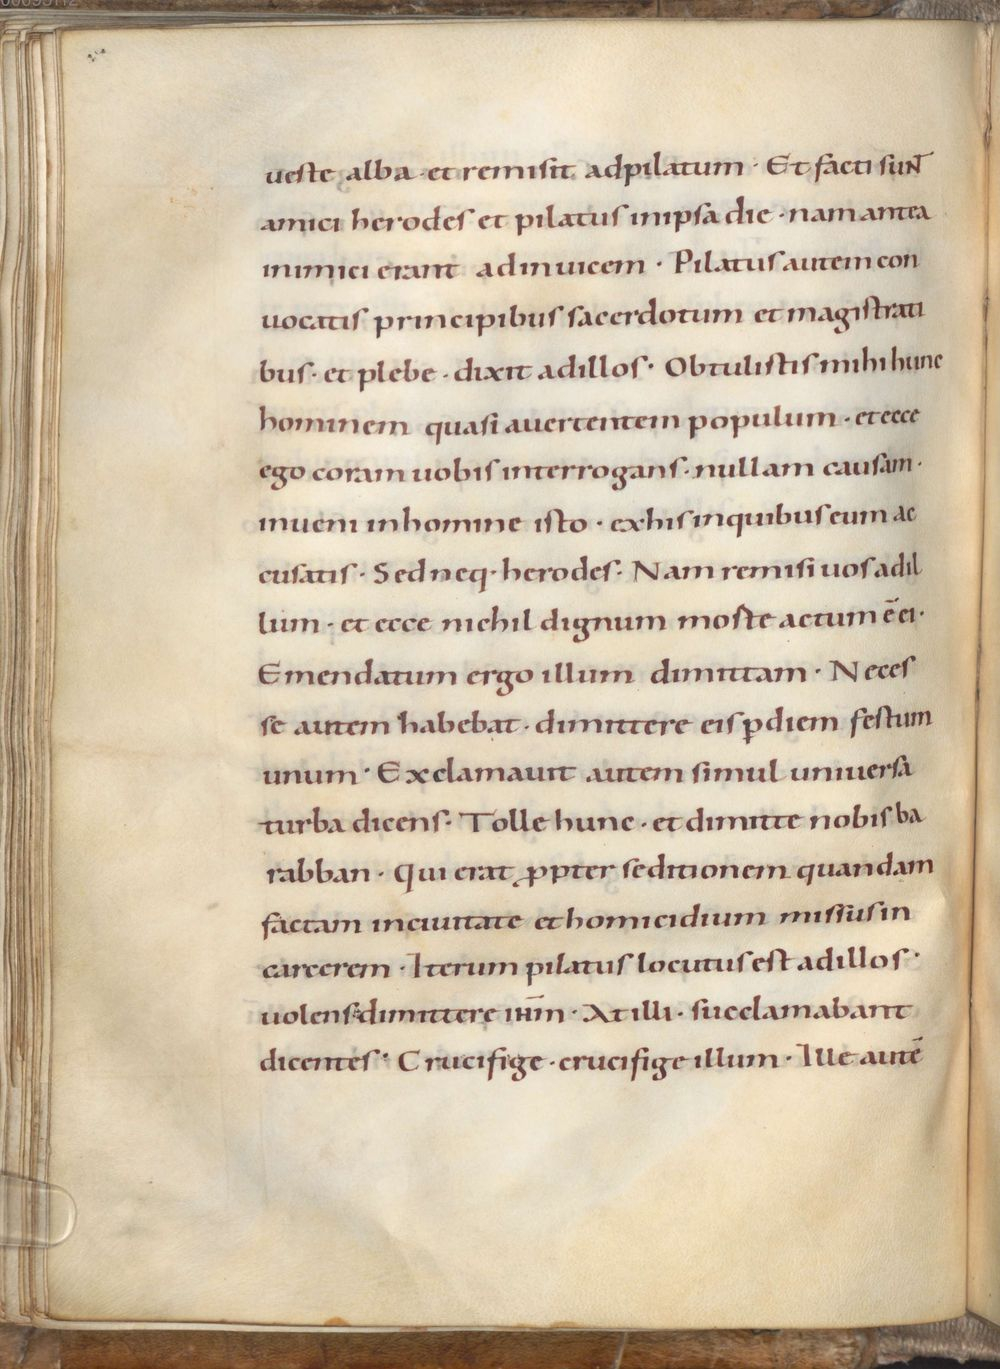 ueste alba · et remisit adpilatum · Et facti sunt
amici herodes et pilatus inipsa die · nam antea
inimici erant adinuicem · Pilatus autem con
uocatis principibus sacerdotum et magistrati
bus · et plebe · dixit adillos · Obtulistis mihi hunc
hominem quasi auertentem populum · et ecce
ego coram uobis interrogans · nullam causam ·
inueni inhomine isto · exhis inquibus eum ac
cusatis · Sed neq · herodes · Nam remisi uos adil
lum · et ecce nichil dignum morte actum ē ei ·
Emendatum ergo illum dimittam · Neces
se autem habebat · dimittere eis ꝑdiem festum
unum · Exclamauit autem simul uniuersa
turba dicens · Tolle hunc · et dimitte nobis ba
rabban · Qui erat ꝓpter seditionem quandam
factam inciuitate et homicidium missus in
carcerem · Iterum pilatus locutus est adillos ·
uolens dimittere ihm̄ · At illi · succlamabant
dicentes · Crucifige · crucifige illum · Ille autē